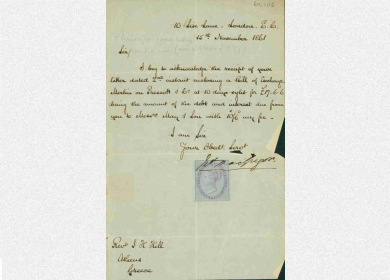 10 Lime Lane. London. E. C.
15th November 1861
Sir,
I beg to acknowledge the receipt of your
letter dated 2nd instant enclosing a bill of Exchange
Merlin on Prescott & Co at 10 days sight for
being the amount of the debt and interest due from
you to Messrs May & Son with my fee.
I am Sir
Your Obedt Servt
Revd J. H. Hill
Athens
Greece